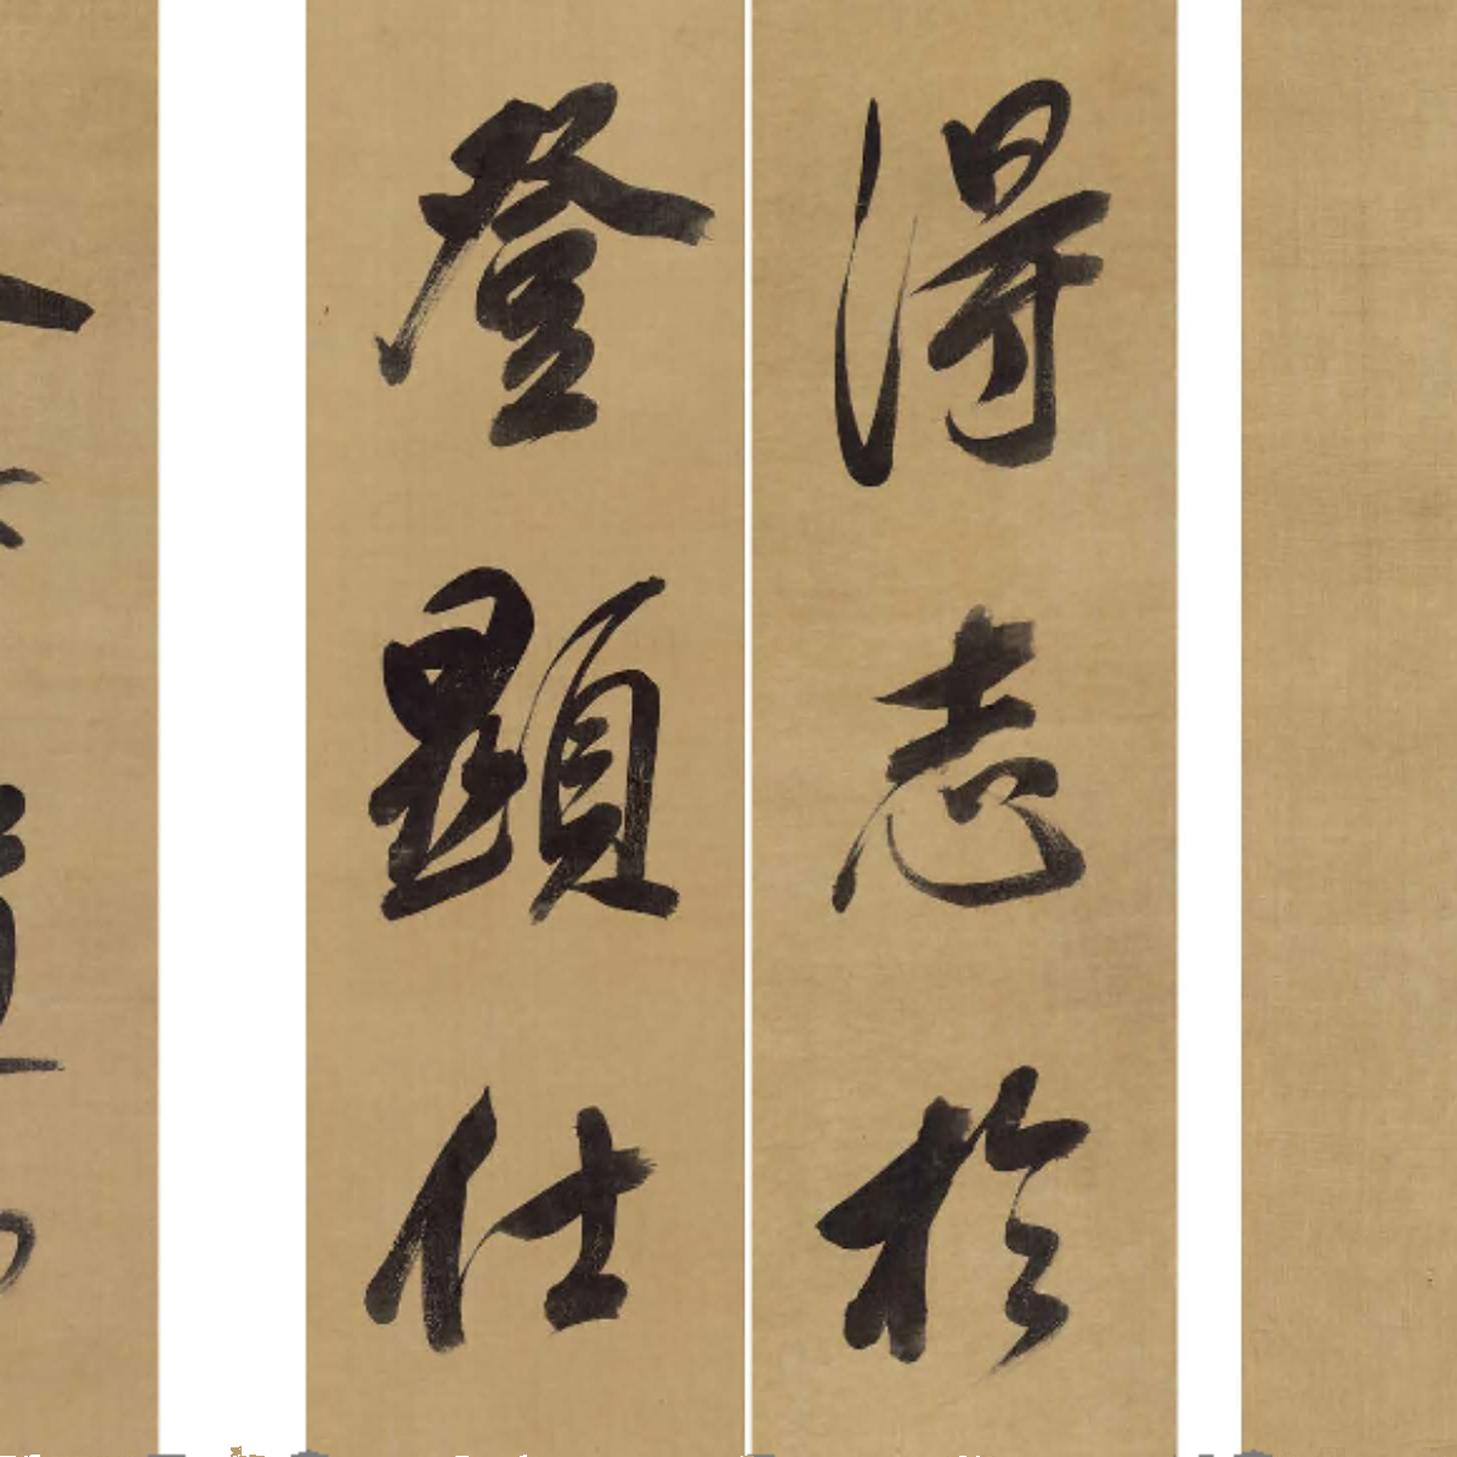 得志於
登顯仕